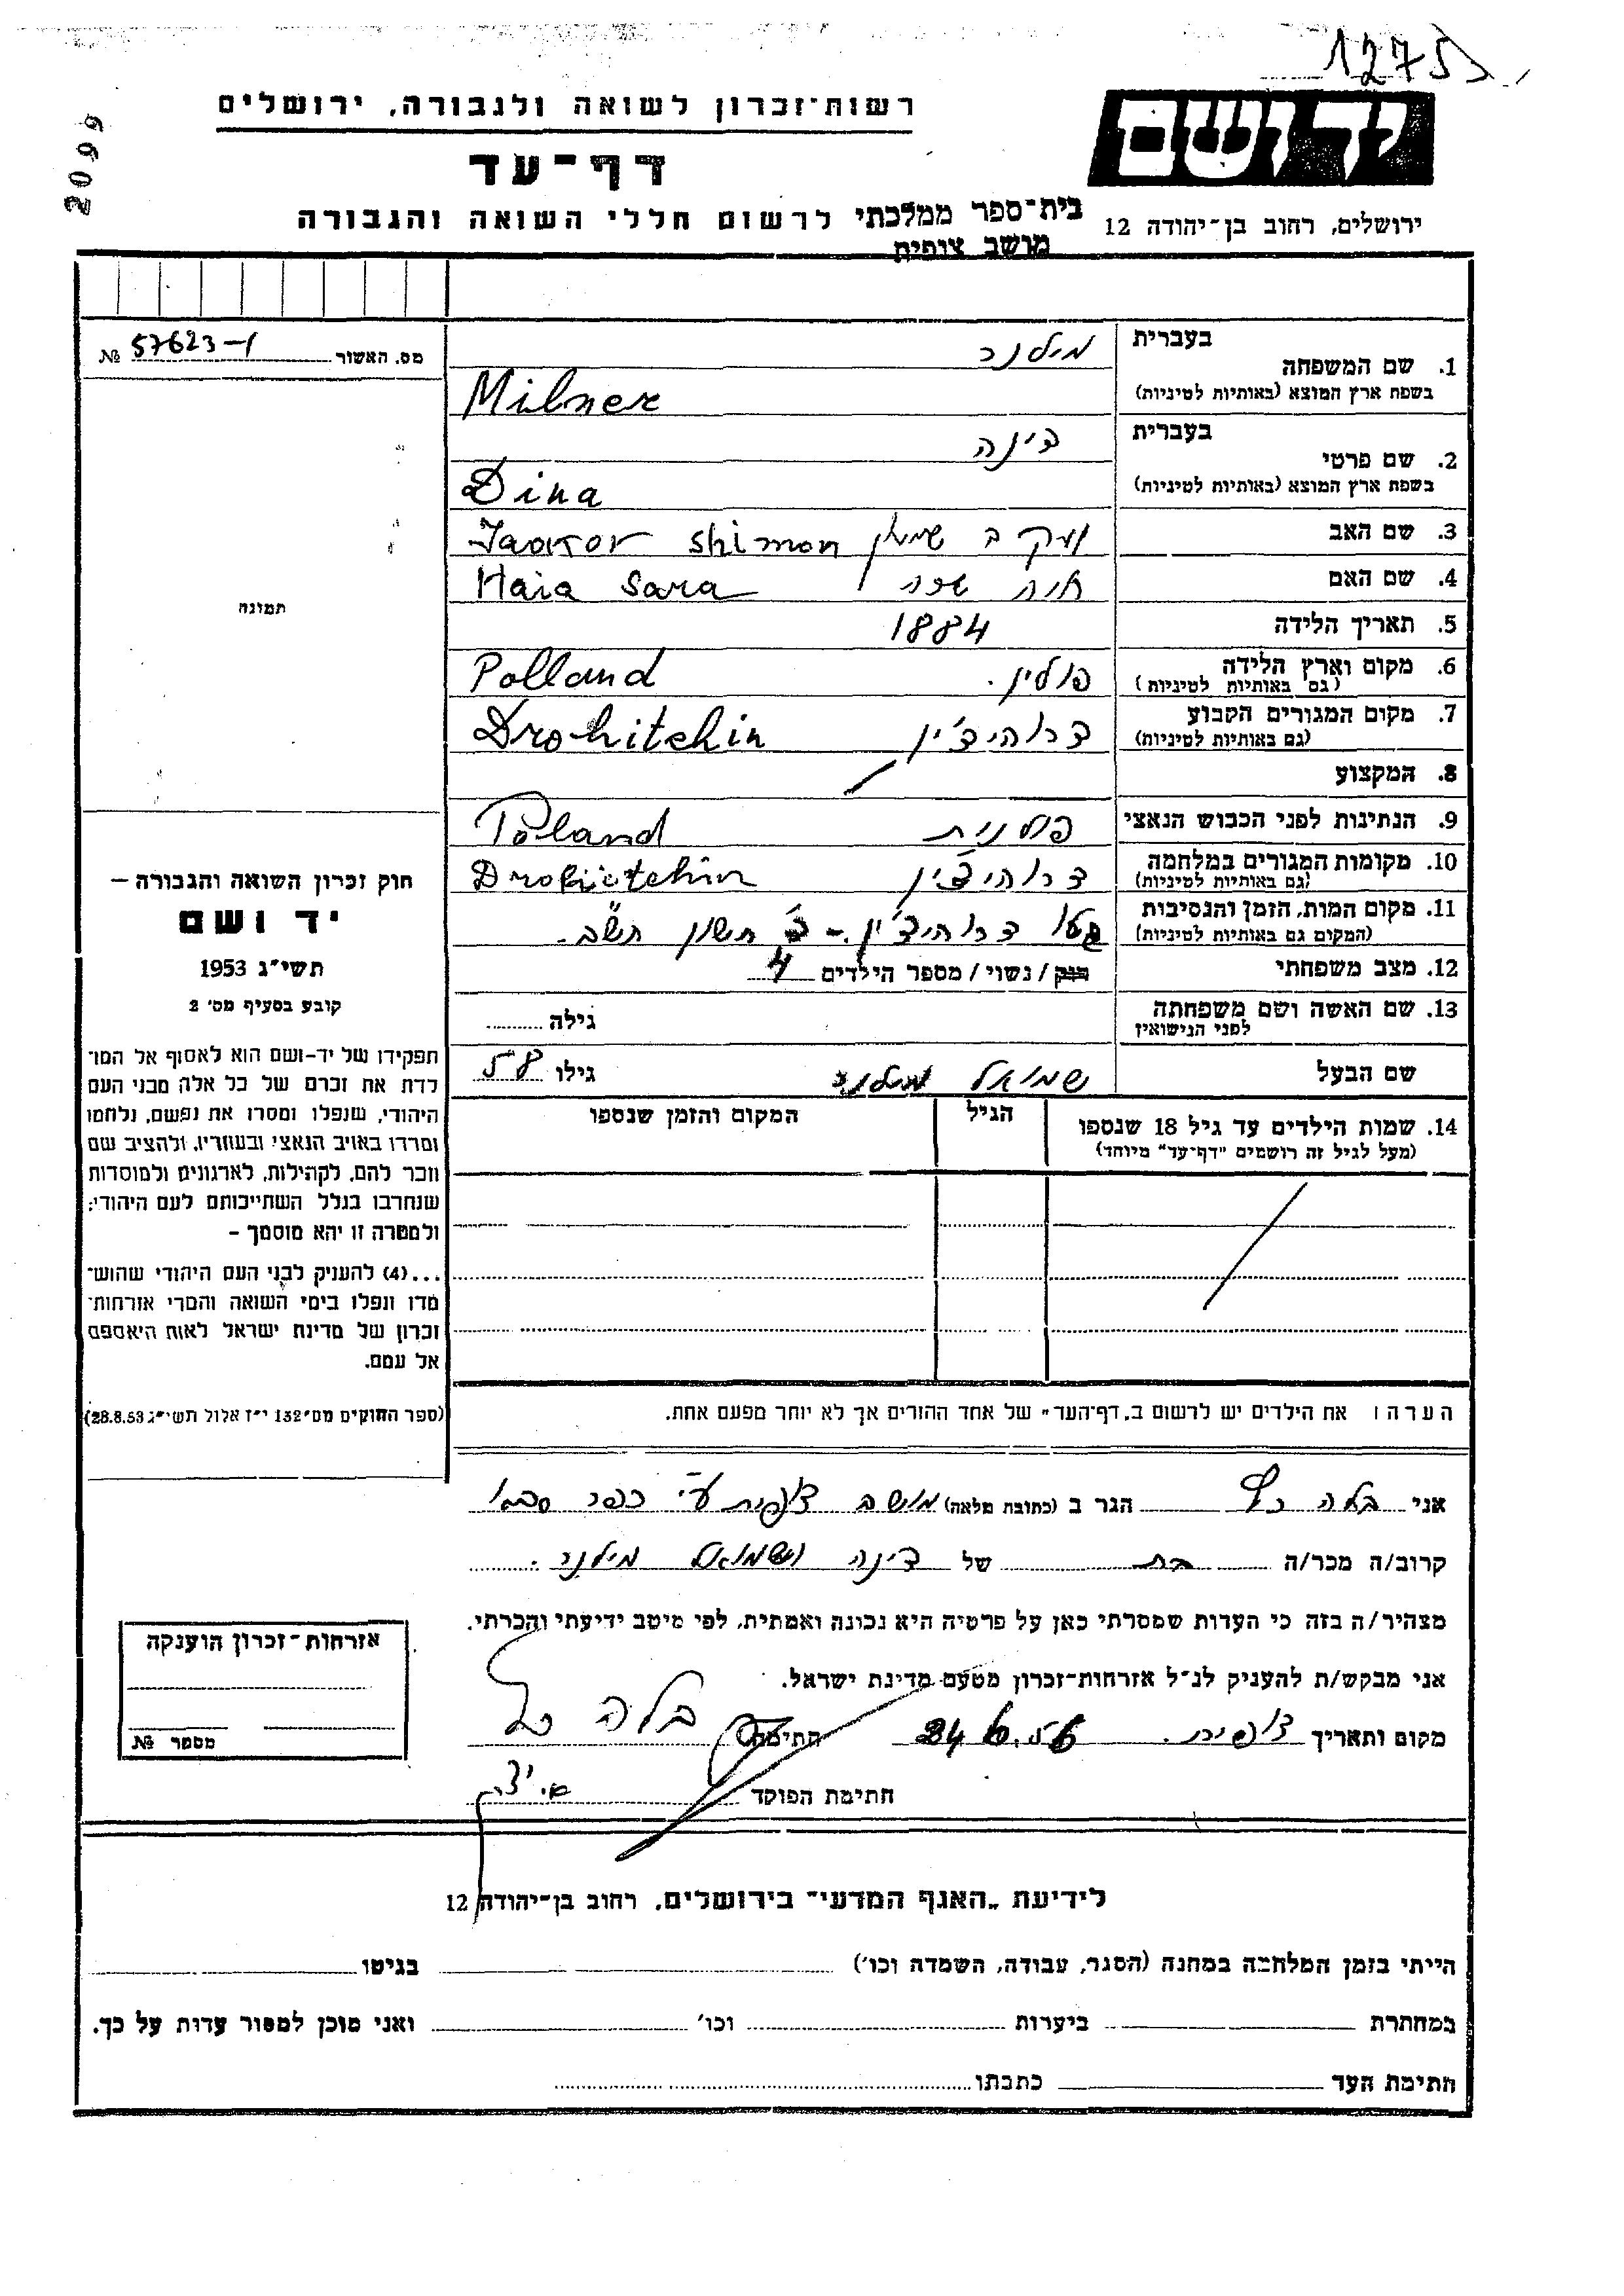 12755
2099
רשות־זכרון לשואה ולגבורה, ירושלים
יד ושם
דף־עד
ירושלים, רחוב בן־יהודה 12
בית־ספר ממלכתי לרשום חללי השואה והגבורה
מושב צופית
מס. האשור № 57623-1
תמונה
1. שם המשפחה
בעברית מילנר
בשפת ארץ המוצא (באותיות לטיניות) Milner
2. שם פרטי
בעברית דינה
בשפת ארץ המוצא (באותיות לטיניות) Dina
3. שם האב יעקב שמעון Jaakov Shimon
4. שם האם חיה שרה Haia Sara
5. תאריך הלידה 1884
6. מקום וארץ הלידה פולין. Polland
(גם באותיות לטיניות)
7. מקום המגורים הקבוע דרוהיצ'ין Drohitchin
(גם באותיות לטיניות)
8. המקצוע
9. הנתינות לפני הכבוש הנאצי פולנית Poland
10. מקומות המגורים במלחמה דרוהיצ'ין Drohitchin
(גם באותיות לטיניות)
11. מקום המות, הזמן והנסיבות גטו דרוהיצ'ין - חשון תש"ב.
(המקום גם באותיות לטיניות)
12. מצב משפחתי רווק / נשוי / מספר הילדים 4
13. שם האשה ושם משפחתה גילה
לפני הנישואין
שם הבעל שמואל מילנר גילו 58
14. שמות הילדים עד גיל 18 שנספו הגיל המקום והזמן שנספו
(מעל לגיל זה רושמים "דף־עד" מיוחד)
הערה: את הילדים יש לרשום ב„דף־העד" של אחד ההורים אך לא יותר מפעם אחת.
חוק זכרון השואה והגבורה –
יד ושם
תשי"ג 1953
קובע בסעיף מס' 2
תפקידו של יד-ושם הוא לאסוף אל המו־
לדת את זכרם של כל אלה מבני העם
היהודי, שנפלו ומסרו את נפשם, נלחמו
ומרדו באויב הנאצי ובעוזריו, ולהציב שם
וזכר להם, לקהילות, לארגונים ולמוסדות
שנחרבו בגלל השתייכותם לעם היהודי;
ולמטרה זו יהא מוסמך –
...(4) להעניק לבני העם היהודי שהוש־
מדו ונפלו בימי השואה והמרי אזרחות־
זכרון של מדינת ישראל לאות היאספם
אל עמם.
(ספר החוקים מס' 132 י"ז אלול תשי"ג 28.8.53)
אני בלה הגר ב (כתובת מלאה) מושב צופית ע"י כפר סבא
קרוב/ה מכר/ה בת של דינה ושמואל מילנר.
מצהיר/ה בזה כי העדות שמסרתי כאן על פרטיה היא נכונה ואמתית, לפי מיטב ידיעתי והכרתי.
אני מבקש/ת להעניק לנ"ל אזרחות־זכרון מטעם מדינת ישראל.
מקום ותאריך צופית 24.6.56 חתימה בלה
חתימת הפוקד
אזרחות־זכרון הוענקה
מספר №
לידיעת „האגף המדעי" בירושלים, רחוב בן־יהודה 12
הייתי בזמן המלחמה במחנה (הסגר, עבודה, השמדה וכו') בגיטו
במחתרת ביערות וכו' ואני מוכן למסור עדות על כך.
חתימת העד כתבתו